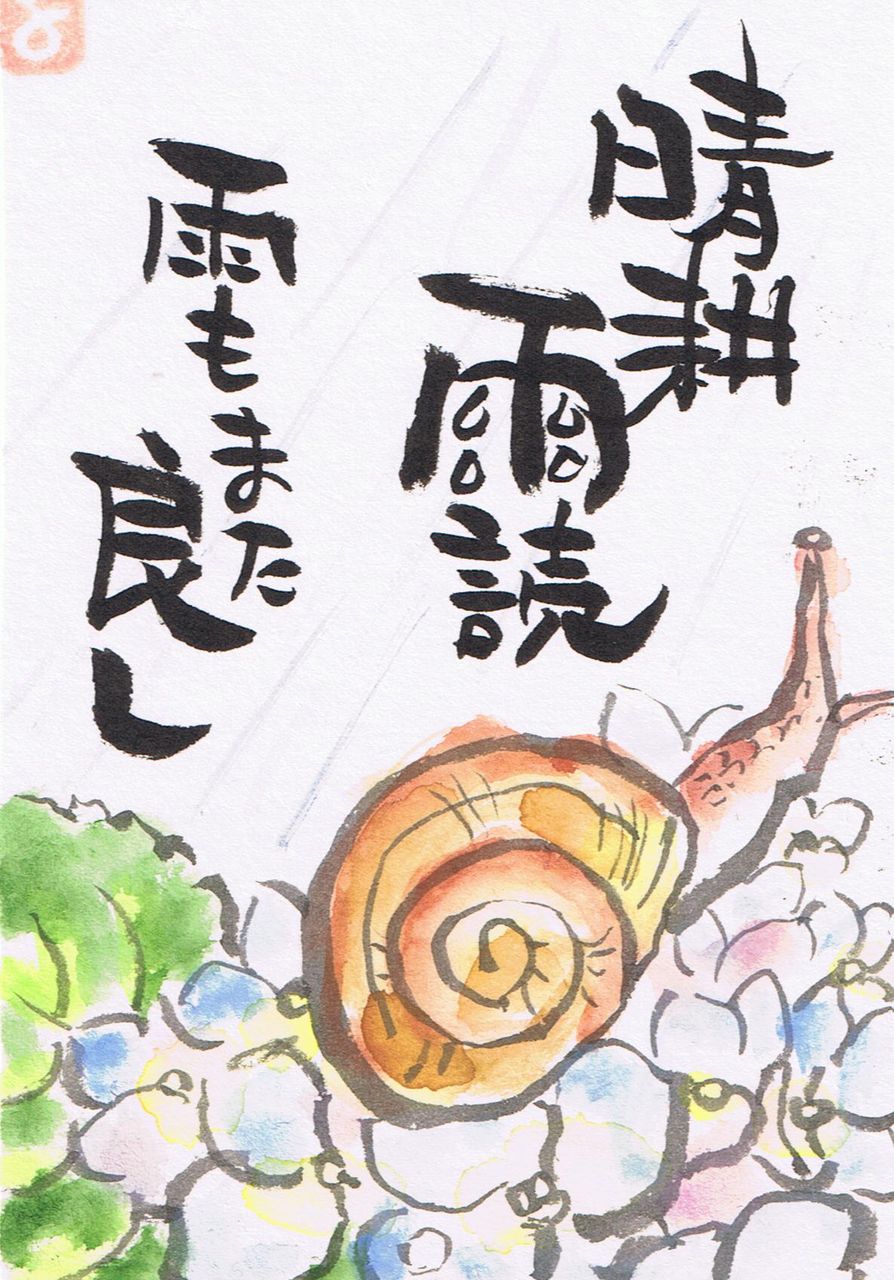 晴耕
雨読
雨もまた
良し